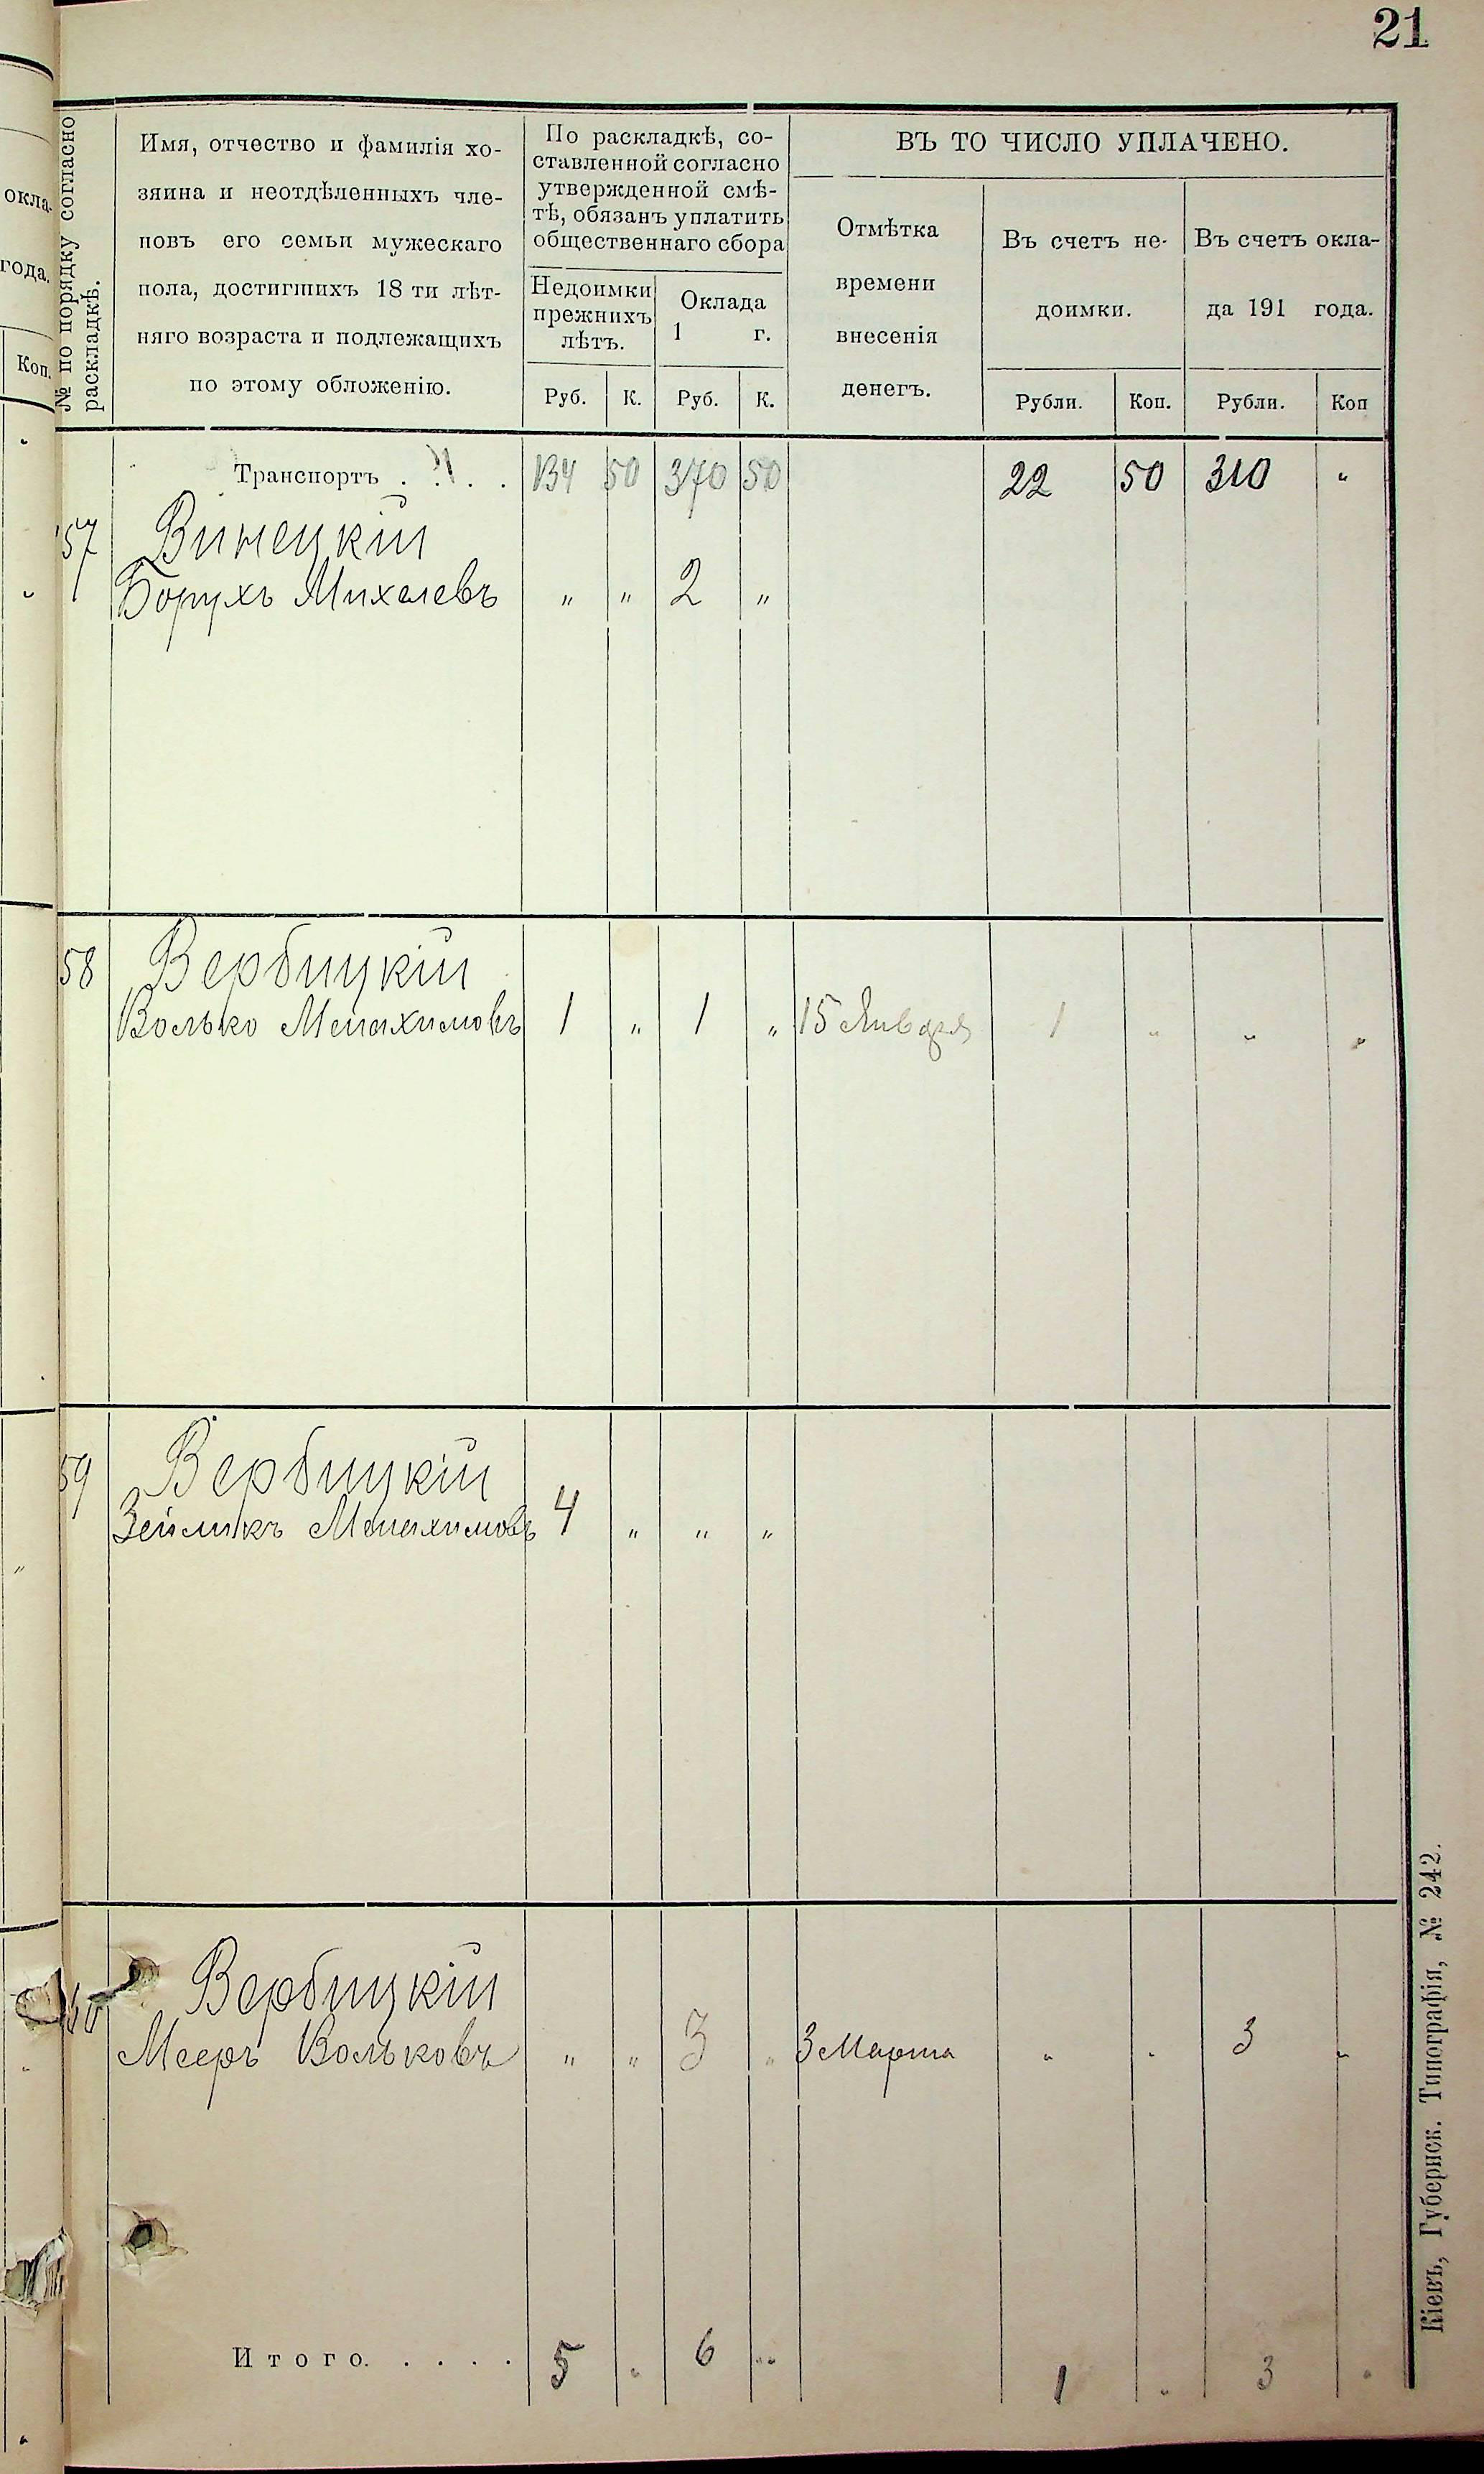 21
окла-
года.
Коп.
№ по порядку согласно
раскладкѣ.
Имя, отчество и фамилія хо-
зяина и неотдѣленныхъ чле-
новъ его семьи мужескаго
пола, достигшихъ 18 ти лѣт-
няго возраста и подлежащихъ
по этому обложенію.
По раскладкѣ, со-
ставленной согласно
утвержденной смѣ-
тѣ, обязанъ уплатить
общественнаго сбора
Недоимки
прежнихъ
лѣтъ.
Оклада
1 г.
Руб. К. Руб. К.
ВЪ ТО ЧИСЛО УПЛАЧЕНО.
Отмѣтка
времени
внесенія
денегъ.
Въ счетъ не-
доимки.
Въ счетъ окла-
да 191 года.
Рубли. Коп. Рубли. Коп
Транспортъ . . . . 134 50 370 50 22 50 310 "
57 Винецкій
Борухъ Михелевъ " " 2 "
58 Вербицкій
Волько Менахимовъ 1 " 1 " 15 Января 1 " " "
59 Вербицкій
Зейликъ Менахимовъ 4 " " "
60 Вербицкій
Мееръ Вольковъ " " 3 " 3 Марта " " 3 "
Итого. . . . . 5 " 6 " 1 " 3 "
Кіевъ, Губернск. Типографія, № 242.